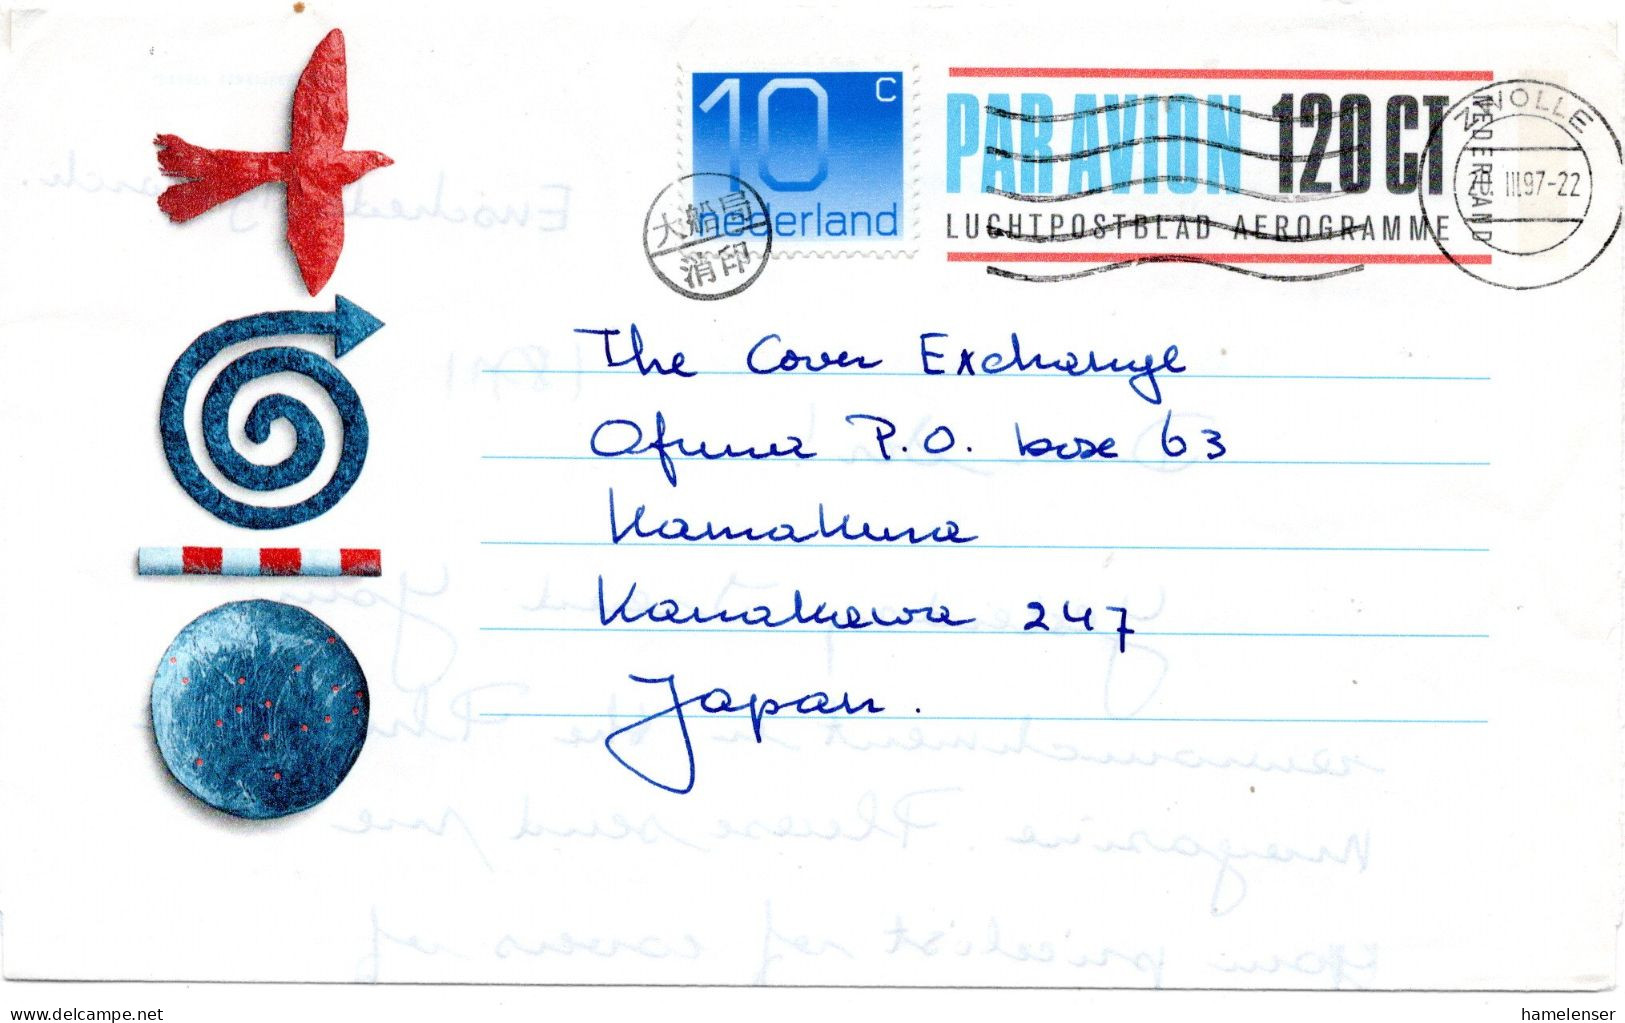 10 c
nederland
大船局
消印
PAR AVION 120 CT
LUCHTPOSTBLAD AEROGRAMME
ZWOLLE
III.97-22
NEDERLAND
The Cover Exchange
Ofuna P.O. box 63
Kamakura
Kanakawa 247
Japan.
www.delcampe.net
hamelenser